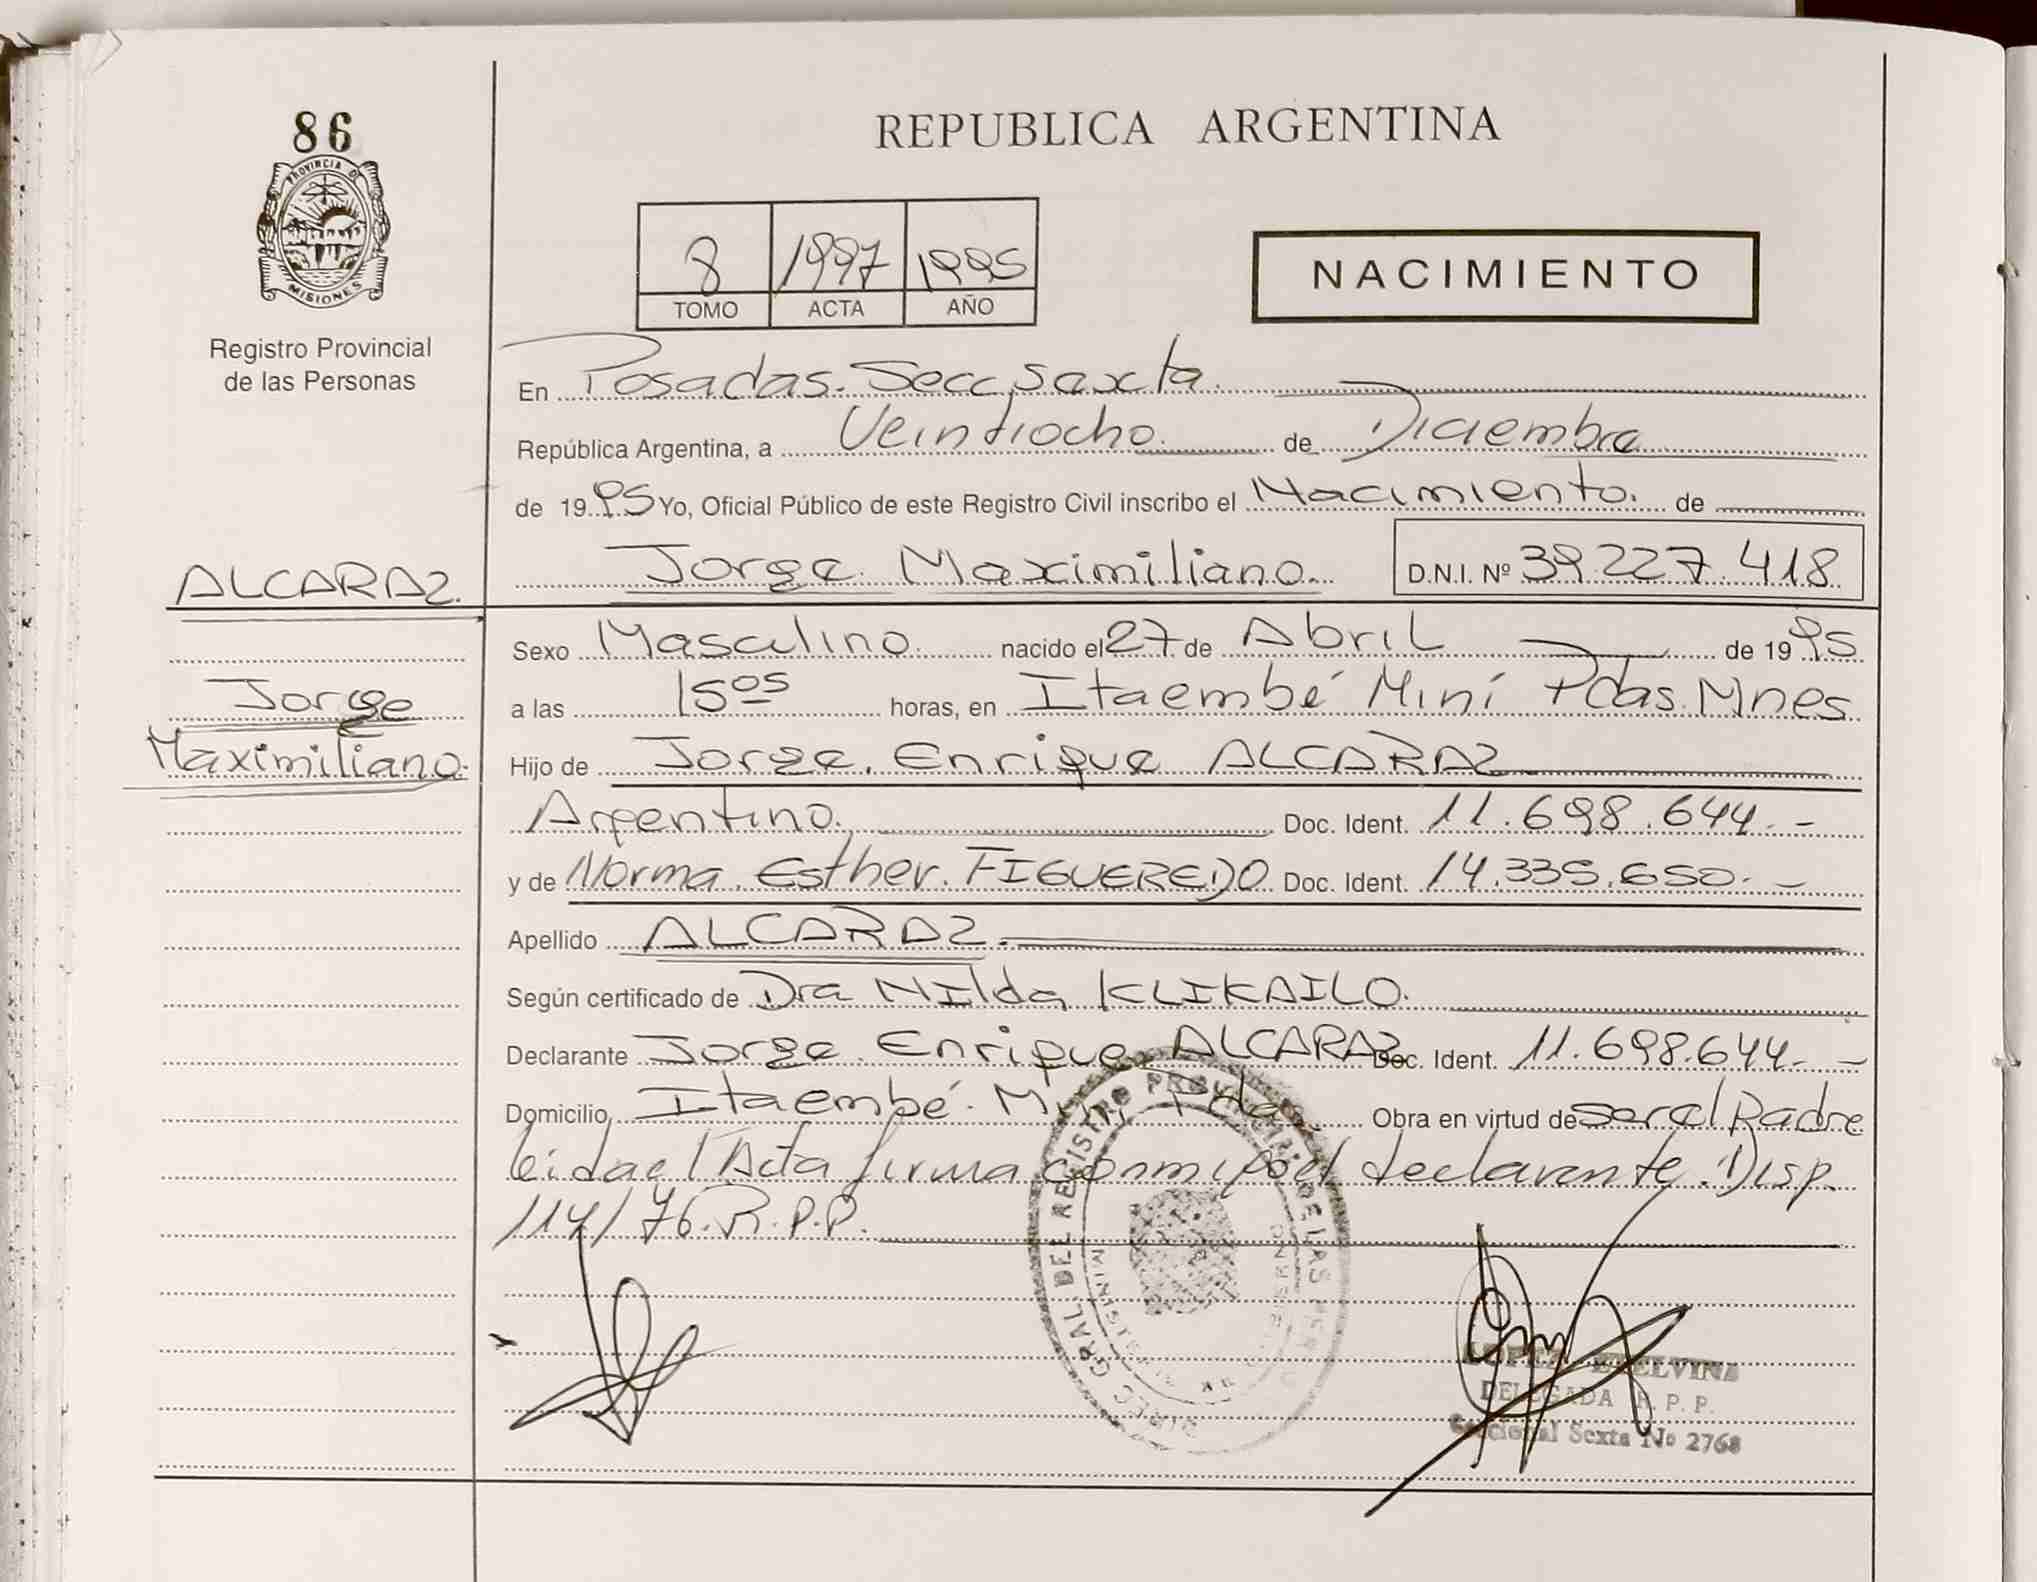 86
PROVINCIA DE
MISIONES
Registro Provincial
de las Personas
ALCARAZ.
Jorge
Maximiliano.
REPUBLICA ARGENTINA
8 1997 1995
TOMO ACTA AÑO
NACIMIENTO
En Posadas. Secc. Sexta.
República Argentina, a Veintiocho. de Diciembre
de 1995 Yo, Oficial Público de este Registro Civil inscribo el Nacimiento. de
Jorge Maximiliano. D.N.I. Nº 39.227.418
Sexo Masculino nacido el 27 de Abril de 1995
a las 15 05 horas, en Itaembé Miní Pdas. Mnes
Hijo de Jorge. Enrique ALCARAZ
Argentino. Doc. Ident. 11.698.644.-
y de Norma. Esther. FIGUEREDO Doc. Ident. 14.335.650.-
Apellido ALCARAZ.
Según certificado de Dra Nilda KLIKAILO.
Declarante Jorge. Enrique ALCARAZ Doc. Ident. 11.698.644.-
Domicilio Itaembé. Miní Pdas. Obra en virtud de ser el Padre
leida el Acta firma conmigo el declarante. Disp.
114/76.R.P.P.
DIREC. GRAL. DEL REGISTRO PROVINCIAL DE LAS
ELVINA
DELEGADA R. P. P.
Seccional Sexta No 2768